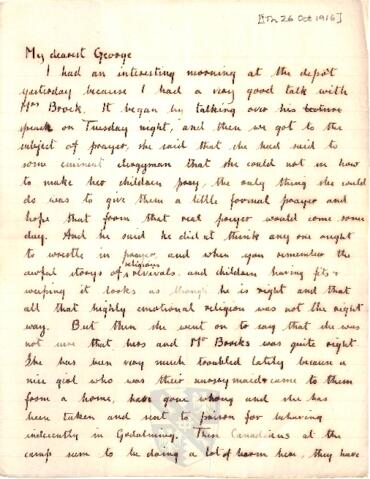 [Th 26 Oct 1916]
My dearest George
I had an interesting morning at the depôt
yesterday because I had a very good talk with
Mrs Brock. It began by talking over his lecture
speach on Tuesday night, and then we got to the
subject of prayer, she said that she had said to
some eminent clergyman that she could not in how
to make her children pray, the only thing she could
do was to give them a little formal prayer and
hope that from that real prayer would come some
day. And he said he did nt think any one ought
to wrestle in prayer, and when you remember the
religious
awful storys of revevals and children having fits &
weeping it looks as though he is right and that
all that highly emotional religion was not the right
way. But then she went on to say that she was
not sure that hers and Mr Brocks was quite right
She has been very much troubled lately because a
nice girl who was their nurserymaid & came to them
from a home, have gone wrong and she has
been taken and sent to prison for behaving
indecently in Godalming. These Canadians at the
camp seem to be doing a lot of harm here, they have